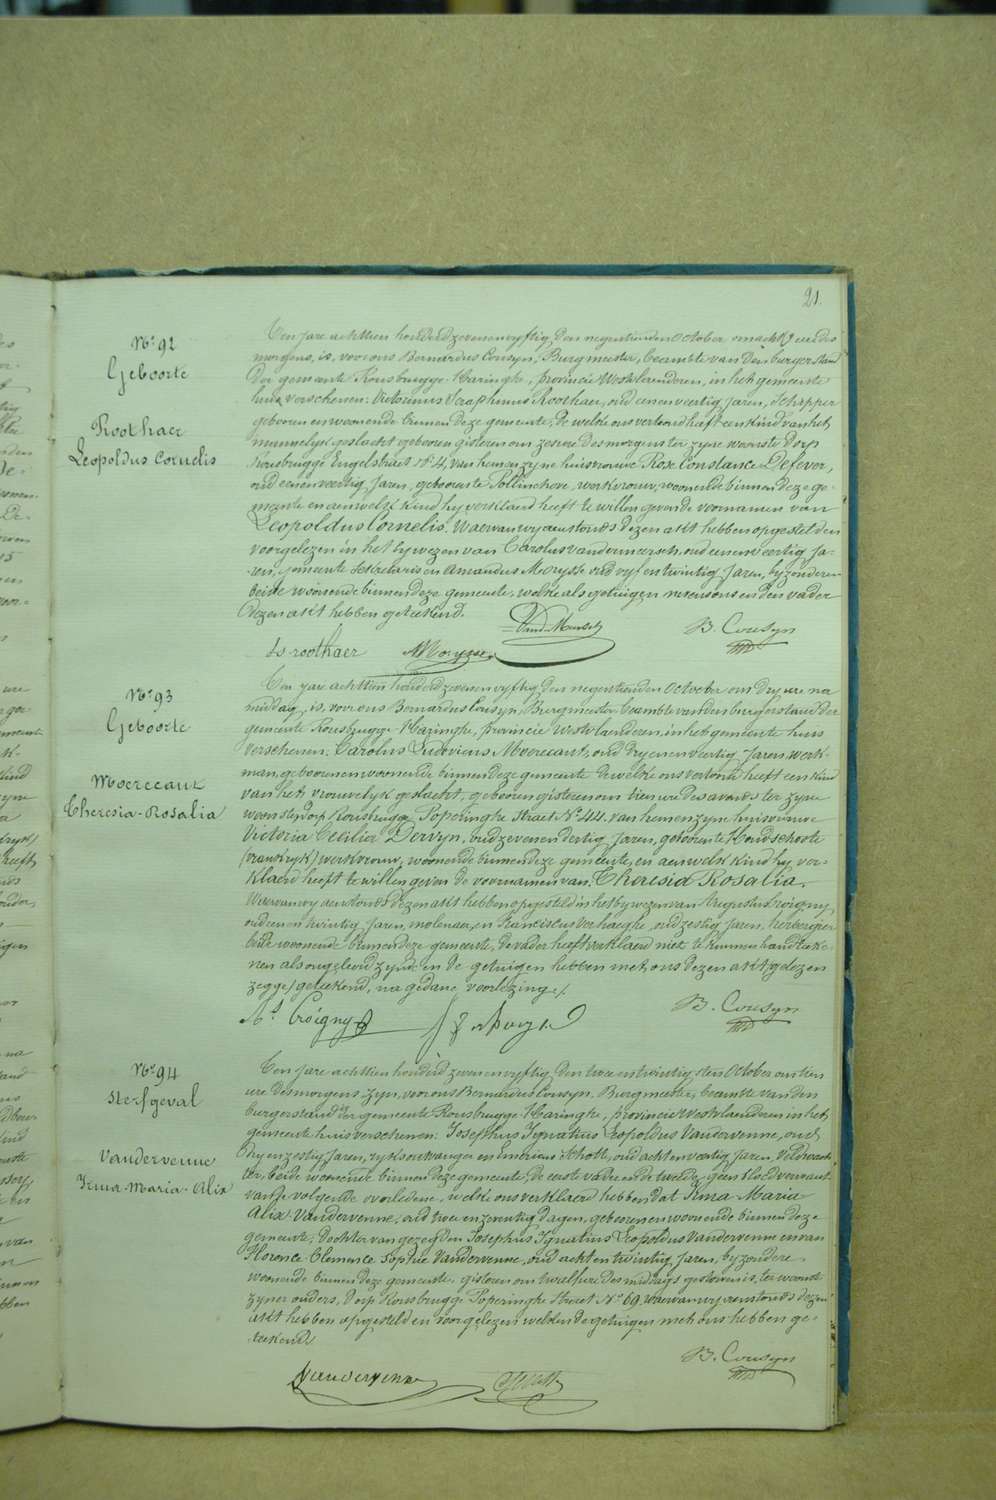 21.
N.º 92
Geboorte
Roothaer
Leopoldus Cornelis
Ten jare achttien honderd zevenenvyftig, den negentienden October omacht ure des
morgens, is, voor ons Bernardus Cousyn, Burgmeester, beambte van den burgerstand
der gemeente Rousbrugge-Haringhe, provincie Westvlaenderen, in het gemeente
huis verschenen: Victorinus Seraphinus Roothaer, oud eenenveertig Jaren, Schipper
geboren en woonende binnen deze gemeente, de welke ons vertoond heeft een kind van het
mannelyk geslacht geboren gisteren om zes ure des morgens ter zyne woonste dorp
Rousbrugge Engelstraet N.º 4, van hem en zyne huisvrouwe Rose Constance Defever,
oud eenenveertig Jaren, geboren te Pollinchove, werkvrouw, woonende binnen deze ge-
meente en aen welk kind hy verklaerd heeft te willen geven de voornamen van
Leopoldus Cornelis. Waervan wy aenstonds dezen akt hebben opgesteld en
voorgelezen in het bywezen van Carolus vandermeersch, oud eenenveertig Ja-
ren, gemeente Sekretaris en Amandus Moryssе oud vyf en twintig Jaren, byzonderen
beide woonende binnen deze gemeente, welke als getuigen nevens ons en den vader
dezen akt hebben geteekend.
B. Cousyn
Ls roothaer
N.º 93
Geboorte
Moerecaut
Theresia-Rosalia
Ten jare achttien honderd zevenenvyftig, den negentienden October om dry ure na
middag, is, voor ons Bernardus Cousyn, Burgmeester beambte van den burgerstand der
gemeente Rousbrugge-Haringhe, provincie Westvlaenderen, in het gemeente huis
verschenen: Carolus Ludovicus Moerecaut, oud dry enveertig Jaren, werk-
man, geboren en woonende binnen deze gemeente dewelke ons vertoond heeft een kind
van het vrouwelyk geslacht, geboren gisteren om tien ure des avonds ter zyne
woonste, dorp Rousbrugge Poperinghe Straet N.º 44, van hem en zyne huisvrouwe
Victoria Cecilia Dervyn, oud zevenendertig Jaren, geboren te Hondschoote
(Vrankryk) werkvrouw, woonende binnen deze gemeente, en aen welk kind hy ver-
klaerd heeft te willen geven de voornamen van Theresia Rosalia.
Waervan wy aenstonds dezen akt hebben opgesteld in het bywezen van Augustus Croigny,
oud een en twintig Jaren, molenaer, en Franciscus verhaeghe, oud zestig Jaren, herbergier
beide woonende binnen deze gemeente, de vader heeft verklaerd niet te kunnen handteeke-
nen als ongeleerd zynde en de getuigen hebben met ons dezen akt (gelezen
zegge) geteekend, na gedane voorlezing./.
B. Cousyn
At Croigny
N.º 94
Sterfgeval
Vandervenne
Irma-Maria-Alix
Ten jare achttien honderd zevenenvyftig, den twee en twintigsten October om tien
ure des morgens zyn, voor ons Bernardus Cousyn, Burgmeester, beambte van den
burgerstand der gemeente Rousbrugge-Haringhe, provincie Westvlaenderen in het
gemeente huis verschenen: Josephus Ignatius Leopoldus Vandervenne, oud
dry en zestig Jaren, ryksontvanger en Schott, oud achtenveertig Jaren, Veldwach-
ter, beide woonende binnen deze gemeente, de eerste vader en de tweede geen bloedverwant
van de volgende overledene, welke ons verklaerd hebben dat Irma Maria
Alix Vandervenne, oud twee en zeventig dagen, geboren en woonende binnen deze
gemeente, dochter van gezegden Josephus Ignatius Leopoldus Vandervenne en van
Florence Clemence Sophie Vandervenne, oud acht en twintig Jaren, byzondere
woonende binnen deze gemeente, gisteren om twelf ure des middags gestorven is, ter woonste
zyner ouders, dorp Rousbrugge Poperinghe Straet N.º 69, waervan wy aenstonds dezen
akt hebben opgesteld en voorgelezen welk den de getuigen met ons hebben ge-
teekend.
B. Cousyn
Vandervenne